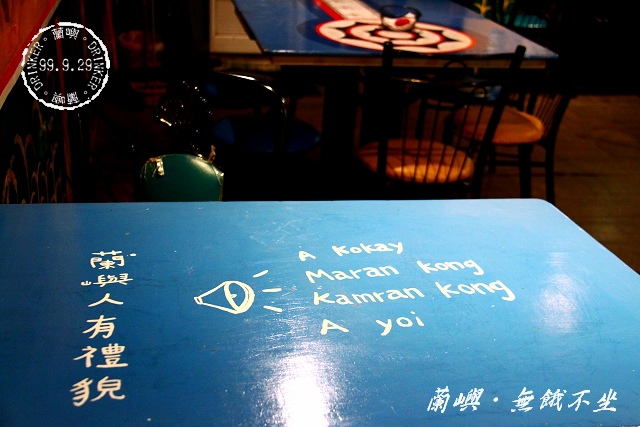 DRINKER。蘭嶼。DRINKER。蘭嶼。
99.9.29
蘭嶼人有禮貌
A Kokay
Maran kong
Kamran kong
A yoi
蘭嶼・無餓不坐